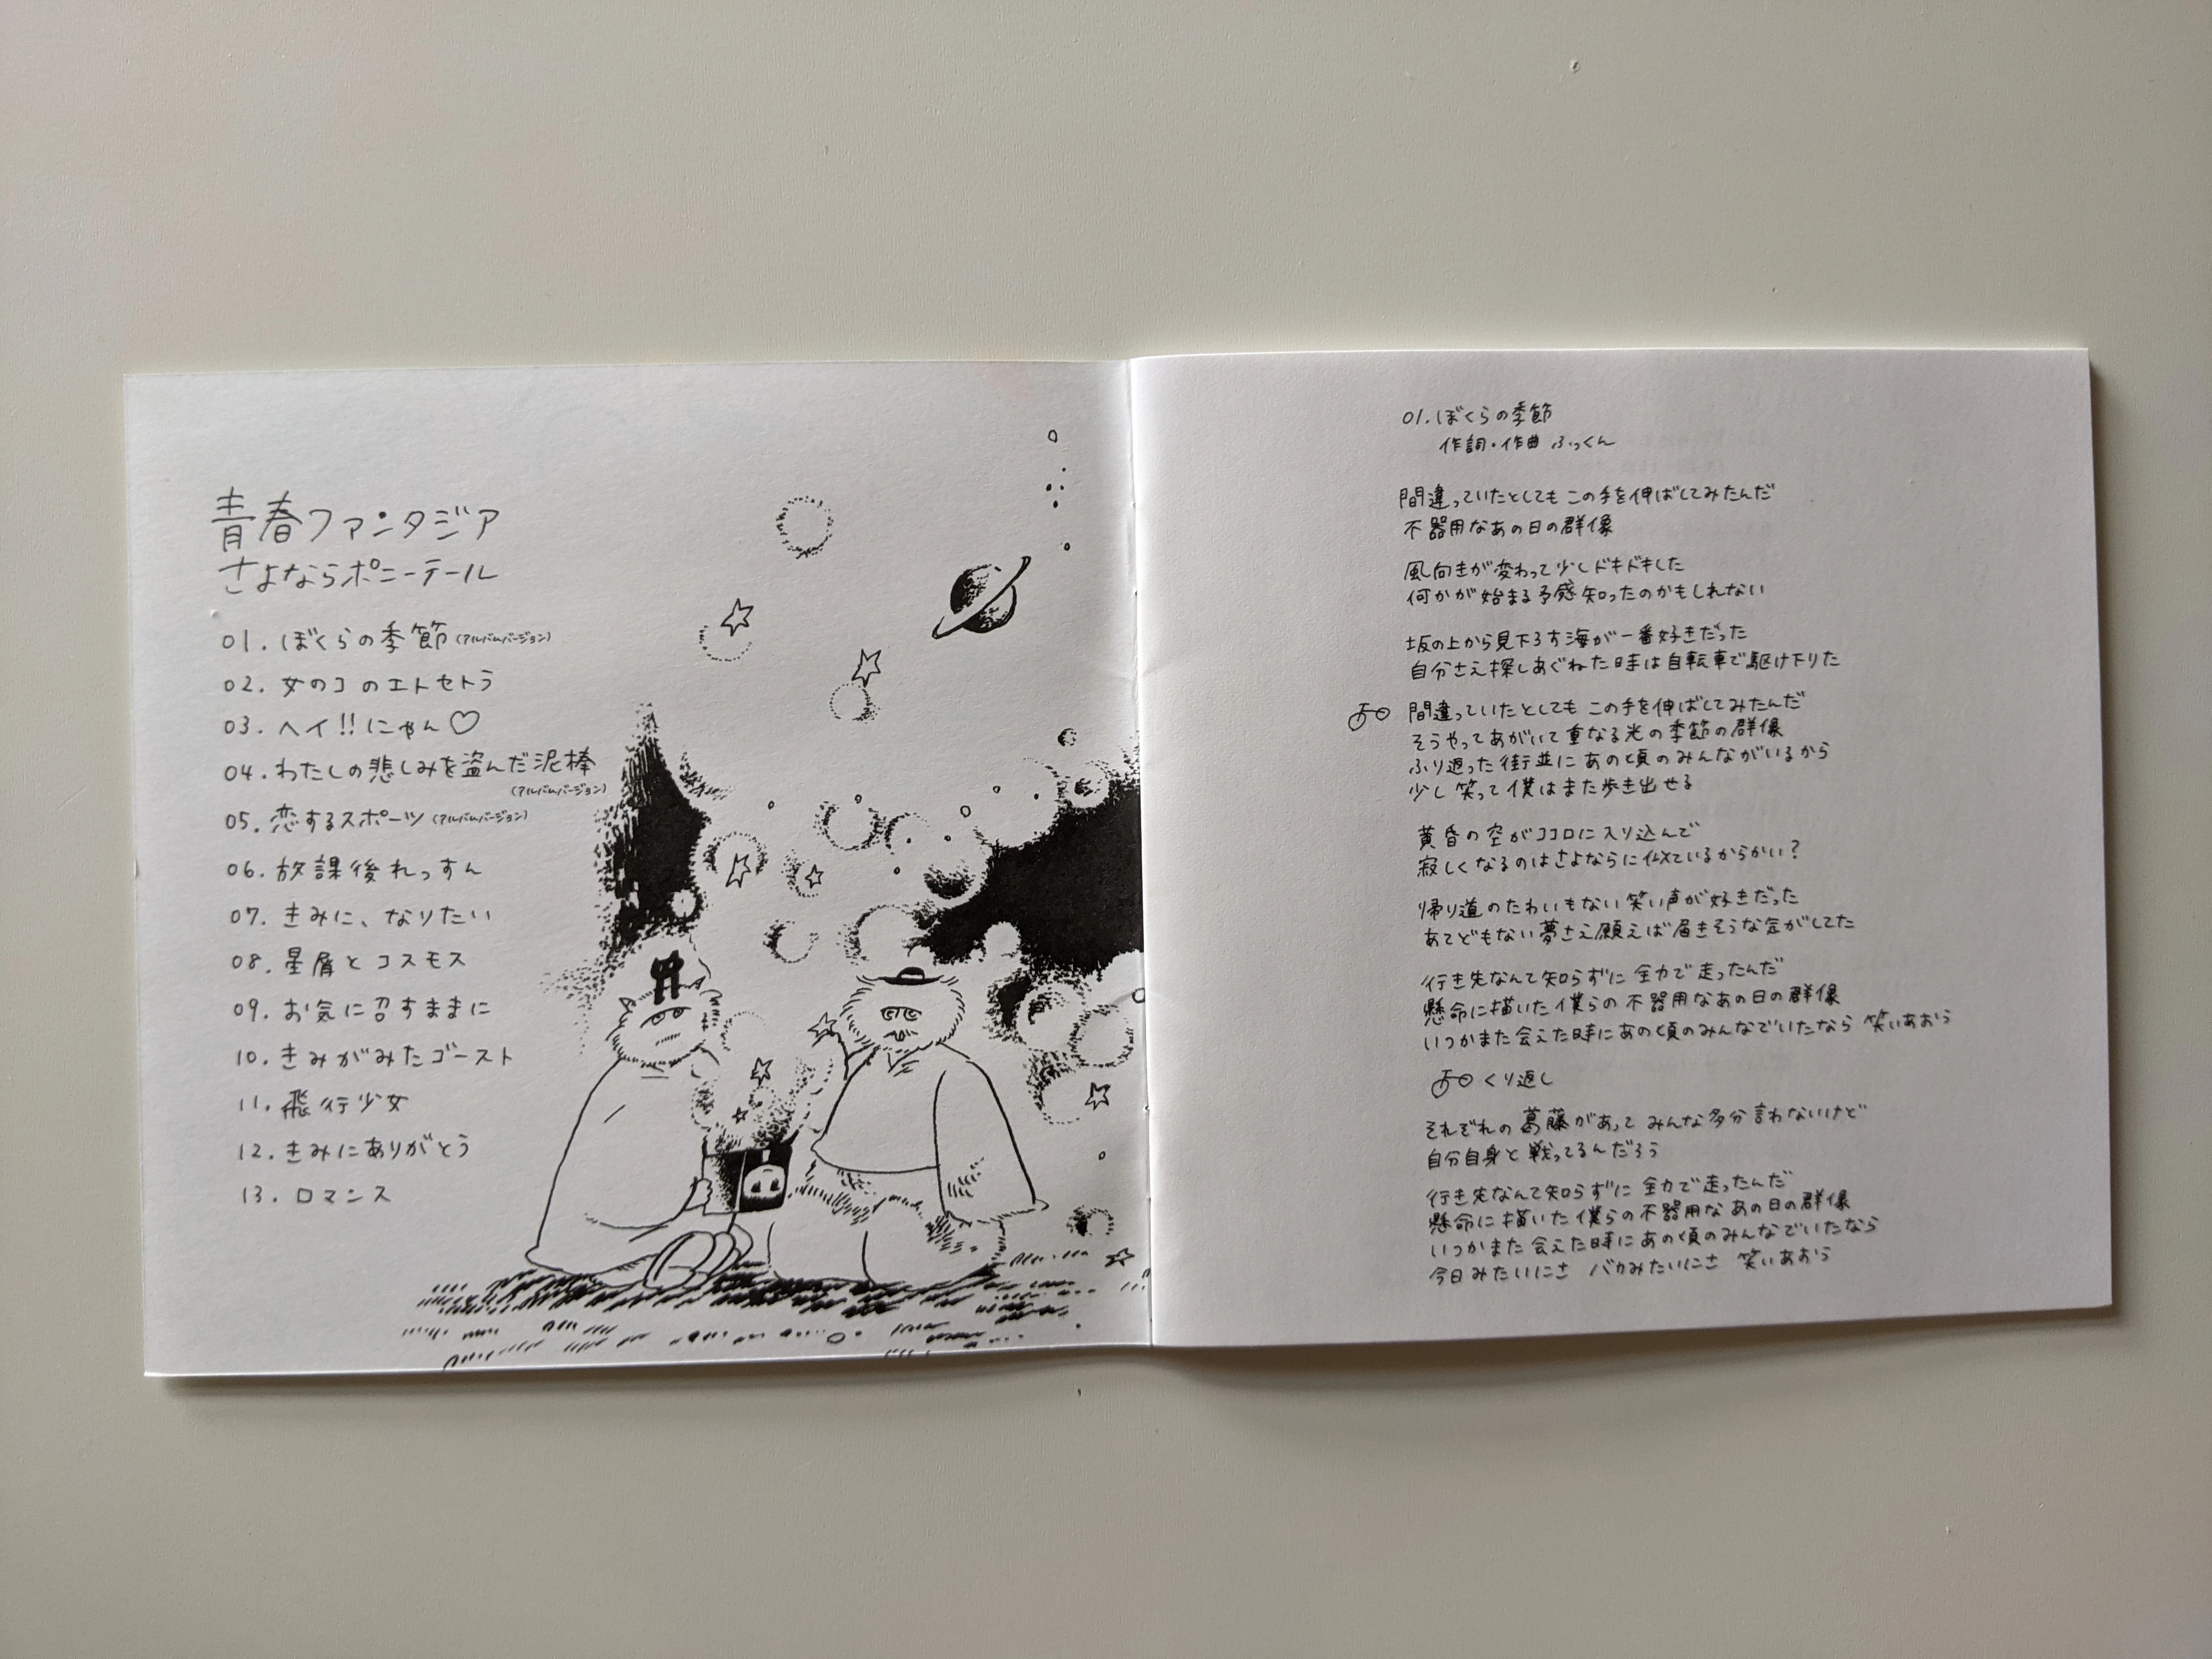 青春ファンタジア
さよならポニーテール
01. ぼくらの季節 (アルバムバージョン)
02. 女のコのエトセトラ
03. ヘイ!!にゃん♡
04. わたしの悲しみを盗んだ泥棒
(アルバムバージョン)
05. 恋するスポーツ (アルバムバージョン)
06. 放課後れっすん
07. きみに、なりたい
08. 星屑とコスモス
09. お気に召すままに
10. きみがみたゴースト
11. 飛行少女
12. きみにありがとう
13. ロマンス
01. ぼくらの季節
作詞・作曲 ふっくん
間違っていたとしても この手を伸ばしてみたんだ
不器用なあの日の群像
風向きが変わって少しドキドキした
何かが始まる予感知ったのかもしれない
坂の上から見下ろす海が一番好きだった
自分さえ探しあぐねた時は自転車で駆け下りた
間違っていたとしても この手を伸ばしてみたんだ
そうやってあがいて重なる光の季節の群像
ふり返った街並に あの頃のみんながいるから
少し笑って僕はまた歩き出せる
黄昏の空がココロに入り込んで
寂しくなるのはさよならに似ているからかい？
帰り道のたわいもない笑い声が好きだった
あてどもない夢さえ願えば届きそうな気がしてた
行き先なんて知らずに 全力で走ったんだ
懸命に描いた僕らの不器用なあの日の群像
いつかまた会えた時にあの頃のみんなでいたなら 笑いあおう
くり返し
それぞれの葛藤があって みんな多分言わないけど
自分自身と戦ってるんだろう
行き先なんて知らずに 全力で走ったんだ
懸命に描いた僕らの不器用なあの日の群像
いつかまた会えた時にあの頃のみんなでいたなら
今日みたいにさ バカみたいにさ 笑いあおう